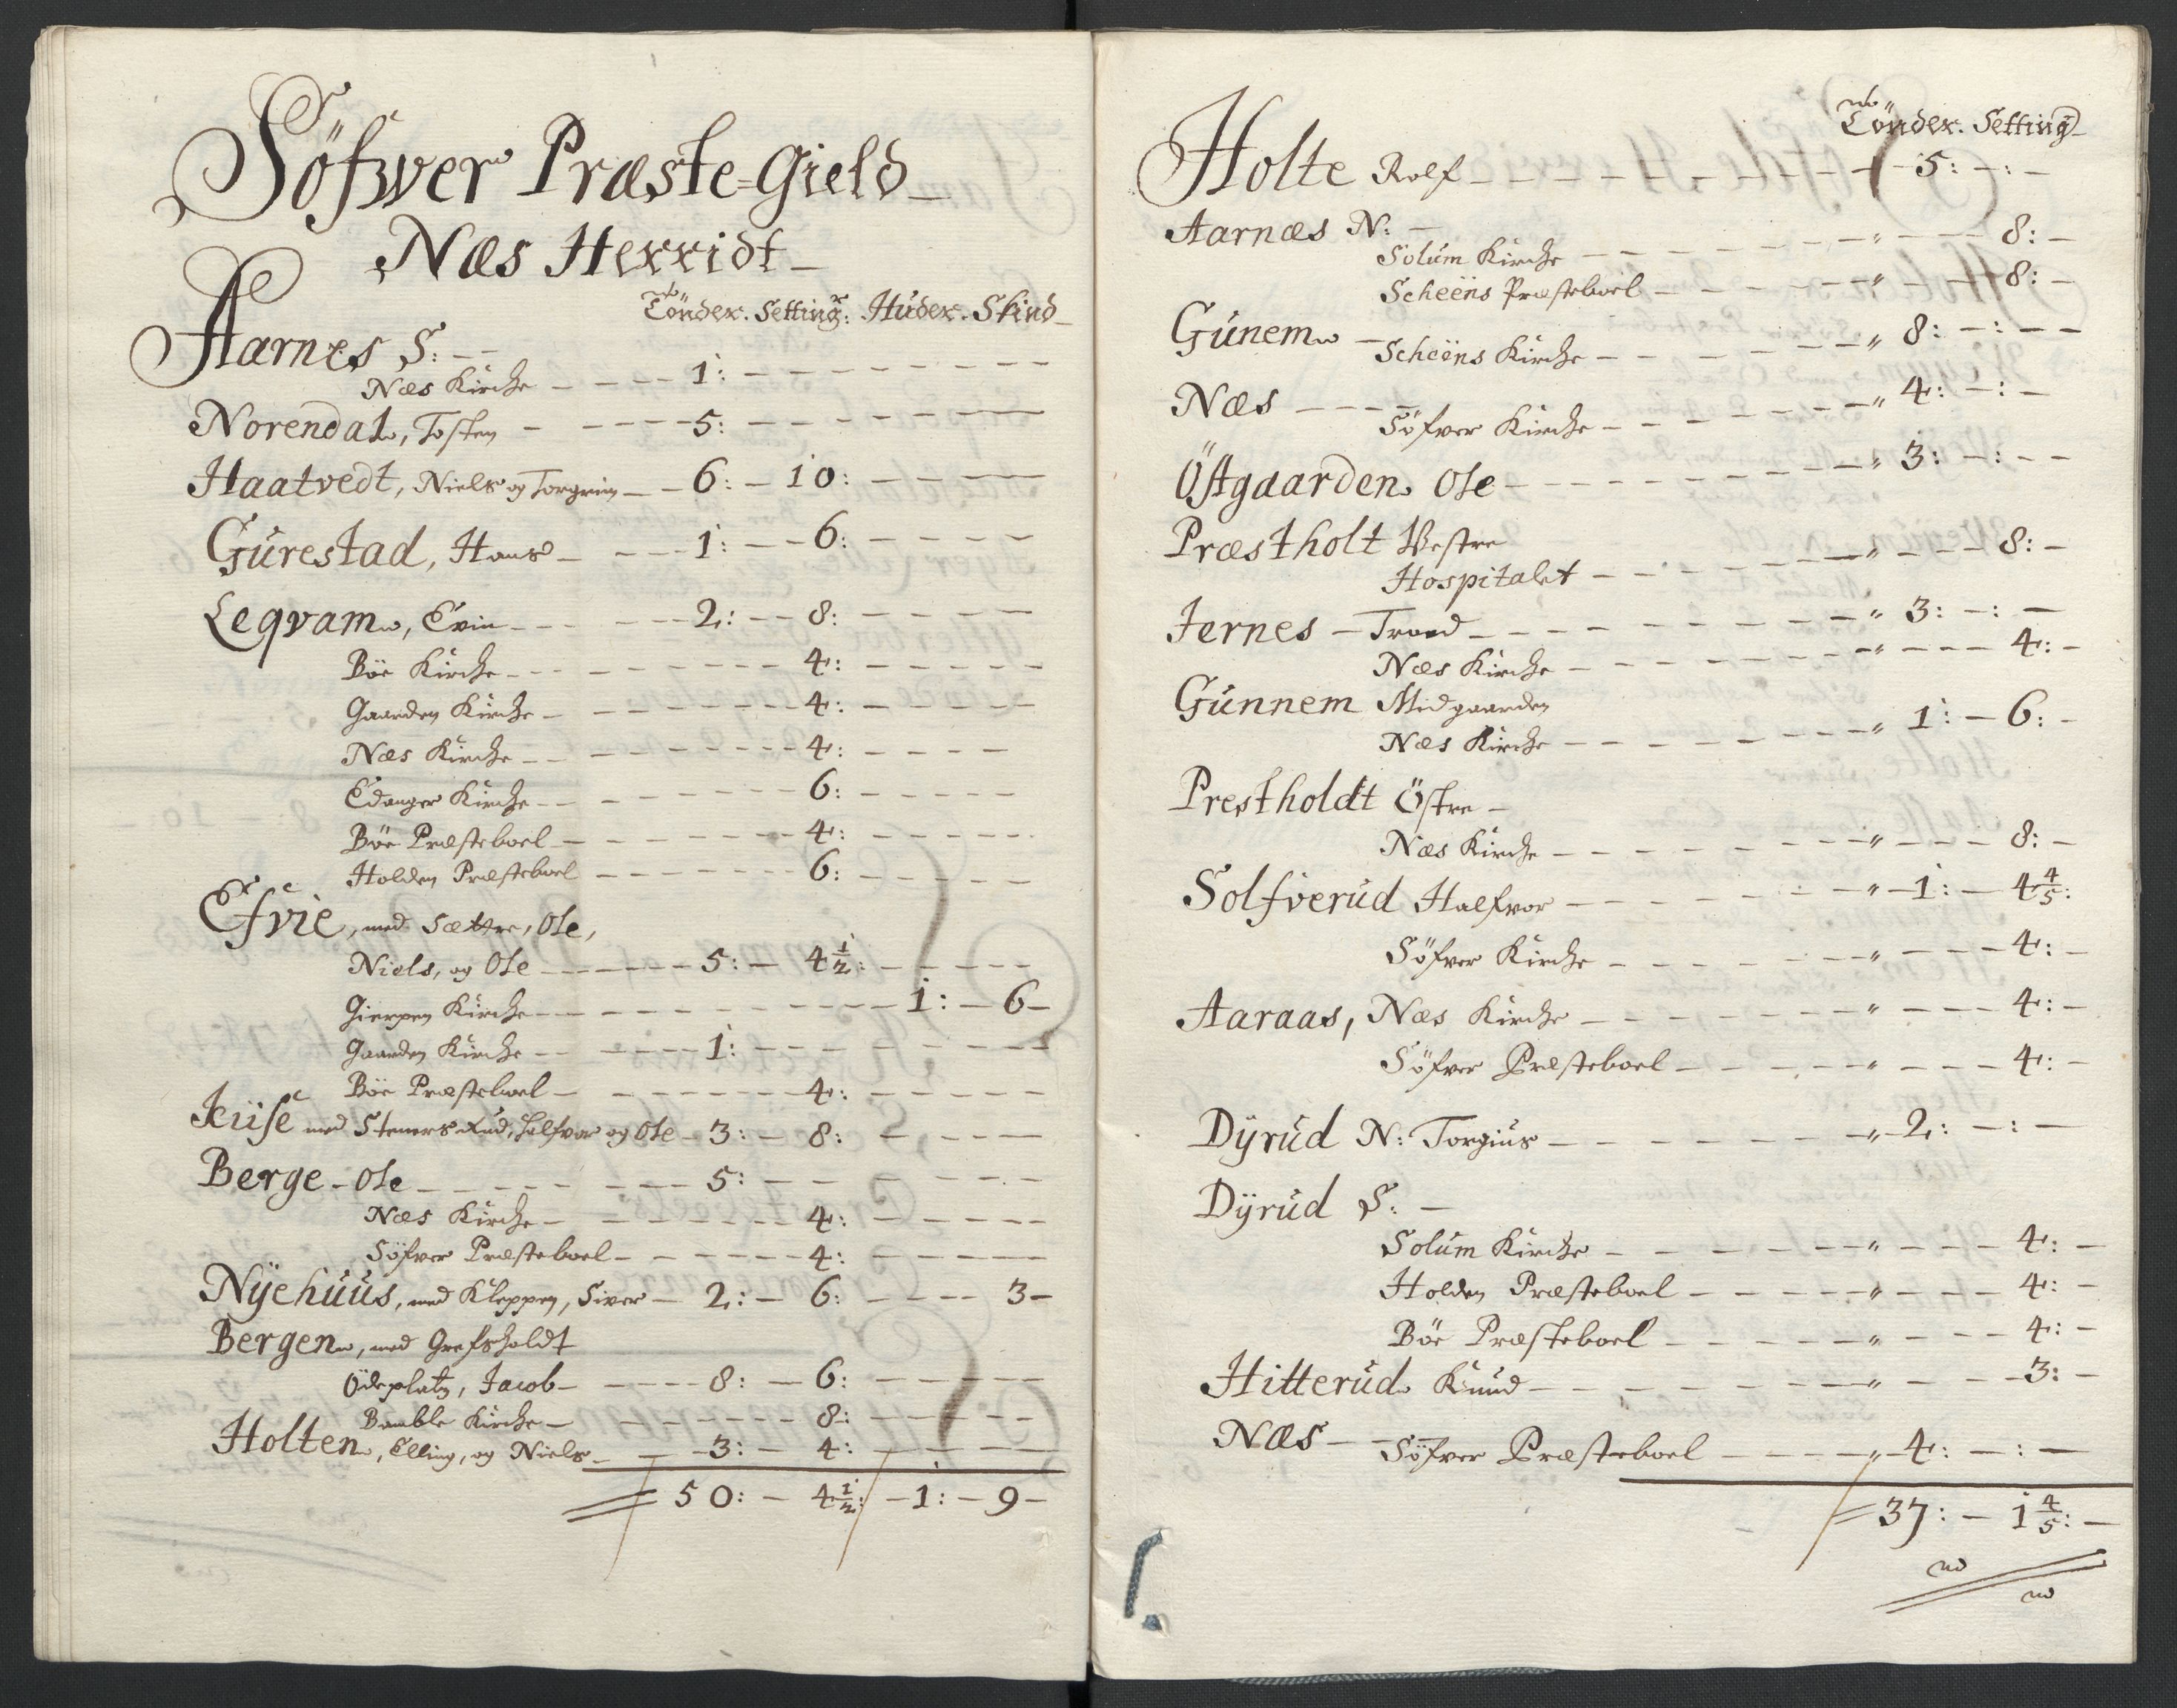 Söfwer Præste-Gield
Næs Herridt
Tönder. Setting: Huder. Skind
Aarnes S:
Næs Kirche 1:
Norendal, Tosten 5:
Haatvedt, Niels og Torgrim 6: 10:
Gurestad, Hans 1: 6:
Leqvam, Evin 2: 8:
Böe Kirche 4:
Gaarden Kirche 4:
Næs Kirche 4:
Edanger Kirche 6:
Böe Præsteboel 4:
Holden Præsteboel 6:
Efvie, med Sættre, Ole,
Niels, og Ole 5: 4 1/2:
Gierpen Kirche 1: 6
Gaarden Kirche 1:
Böe Præsteboel 4:
med Steners Rud, Halfvor og Ole 3: 8:
Berge Ole 5:
Næs Kirche 4:
Söfver Præsteboel 4:
Nÿehuus, med Kleppen, Siver 2: 6: 3
Bergen, med Grefsholdt
Ödeplatz, Jacob 8: 6:
Bamble Kirche 8:
Holten, Elling, og Niels 3: 4:
50: 4 1/2: 1: 9
Tönder. Setting
Holte Rolf 5: :
Aarnæs N:
Solum Kirche " 8:
Scheens Præsteboel " 8:
Gunem
Scheens Kirche " 8: :
Næs
Söfver Kirche " 4: :
Östgaarden Ole " 3: :
Præstholt Vestre
Hospitalet " 8:
Jernes Trond " 3: :
Næs Kirche " 4:
Gunnem Midgaarden
Næs Kirche " 1: 6:
Prestholdt Östre
Næs Kirche " 8:
Solfverud Halfvor " 1: 4 4/5:
Söfver Kirche " 4:
Aaraas, Næs Kirche " 4:
Söfver Præsteboel " 4:
Dÿrud N: Torgius " 2: :
Dÿrud S:
Solum Kirche " 4:
Holden Præsteboel " 4:
Böe Præsteboel " 4:
Hitterud Knud " 3:
Næs Söfver Præsteboel " 4: :
37: 1 4/5: